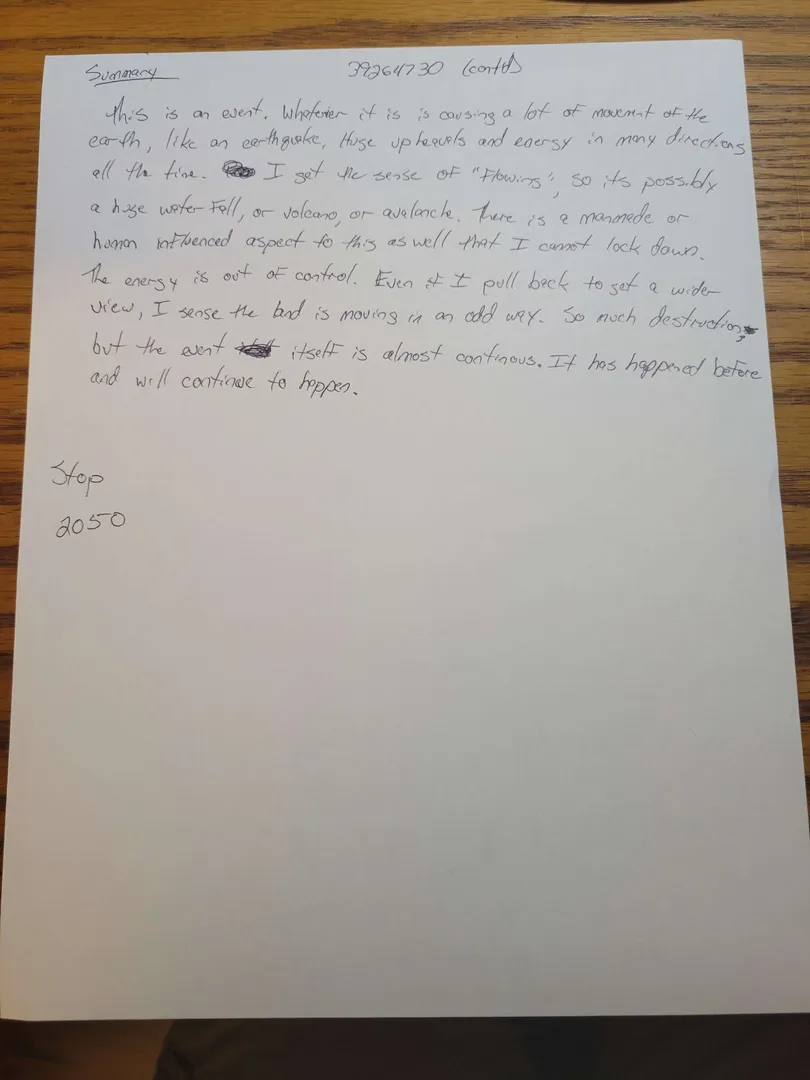 Summary 39264730 (cont'd)
This is an event. Whatever it is is causing a lot of movement of the
earth, like an earthquake, Huge upheavels and energy in many directions
all the time. I get the sense of "Flowing", so its possibly
a huge water Fall, or volcano, or avalanche. There is a manmade or
human influenced aspect to this as well that I cannot lock down.
The energy is out of control. Even if I pull back to get a wider
view, I sense the land is moving in an odd way. So much destruction,
but the event itself is almost continous. It has happened before
and will continue to happen.
Stop
2050